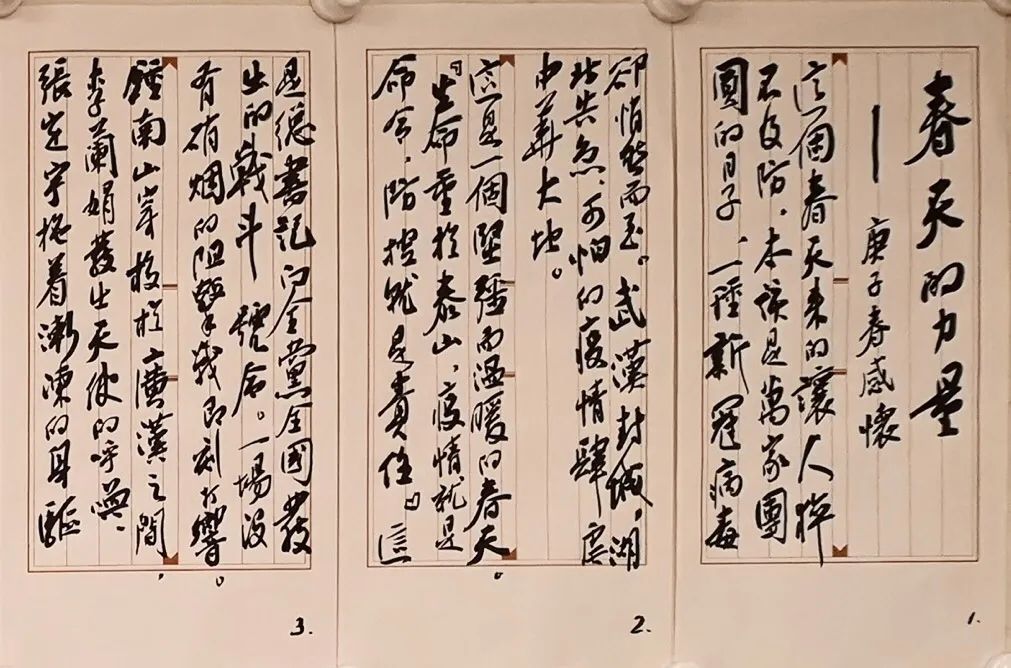 春天的力量
——庚子春感懷
這個春天来的讓人猝
不及防，本该是萬家團
圓的日子，一種新冠病毒
卻悄然而至。武漢封城，湖
北告急，可怕的疫情肆虐
中華大地。
這是一個堅强而温暖的春天。
『生命重於泰山，疫情就是
命令，防控就是責任。』這
是總書記向全黨全國發
出的戰斗號令。一場没
有硝烟的阻擊戰即刻打響。
鍾南山穿梭於廣漢之間，
李蘭娟發出天使的呼喚，
張定宇拖着漸凍的身軀
1.
2.
3.